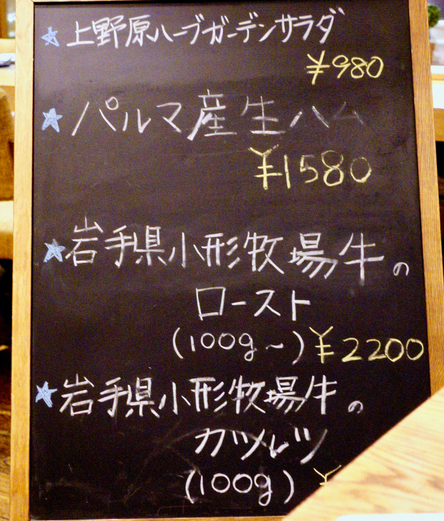 ★上野原ハーブガーデンサラダ
¥980
★パルマ産生ハム
¥1580
★岩手県小形牧場牛の
ロースト
(100g~)¥2200
★岩手県小形牧場牛の
カツレツ
(100g)¥